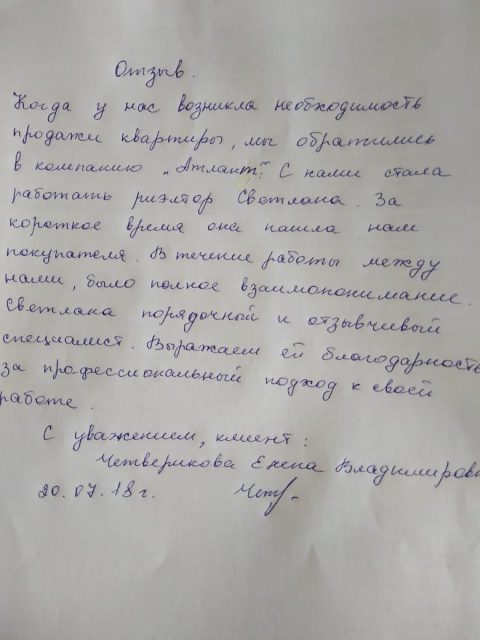 Отзыв.
Когда у нас возникла необходимость
продажи квартиры, мы обратились
в компанию „Атлант". С нами стала
работать риэлтор Светлана. За
короткое время она нашла нам
покупателя. В течение работы между
нами, было полное взаимопонимание.
Светлана порядочный и отзывчивый
специалист. Выражаем ей благодарность
за профессиональный подход к своей
работе.
С уважением, клиент:
Четверикова Елена Владимировн
20.07.18г. Чет